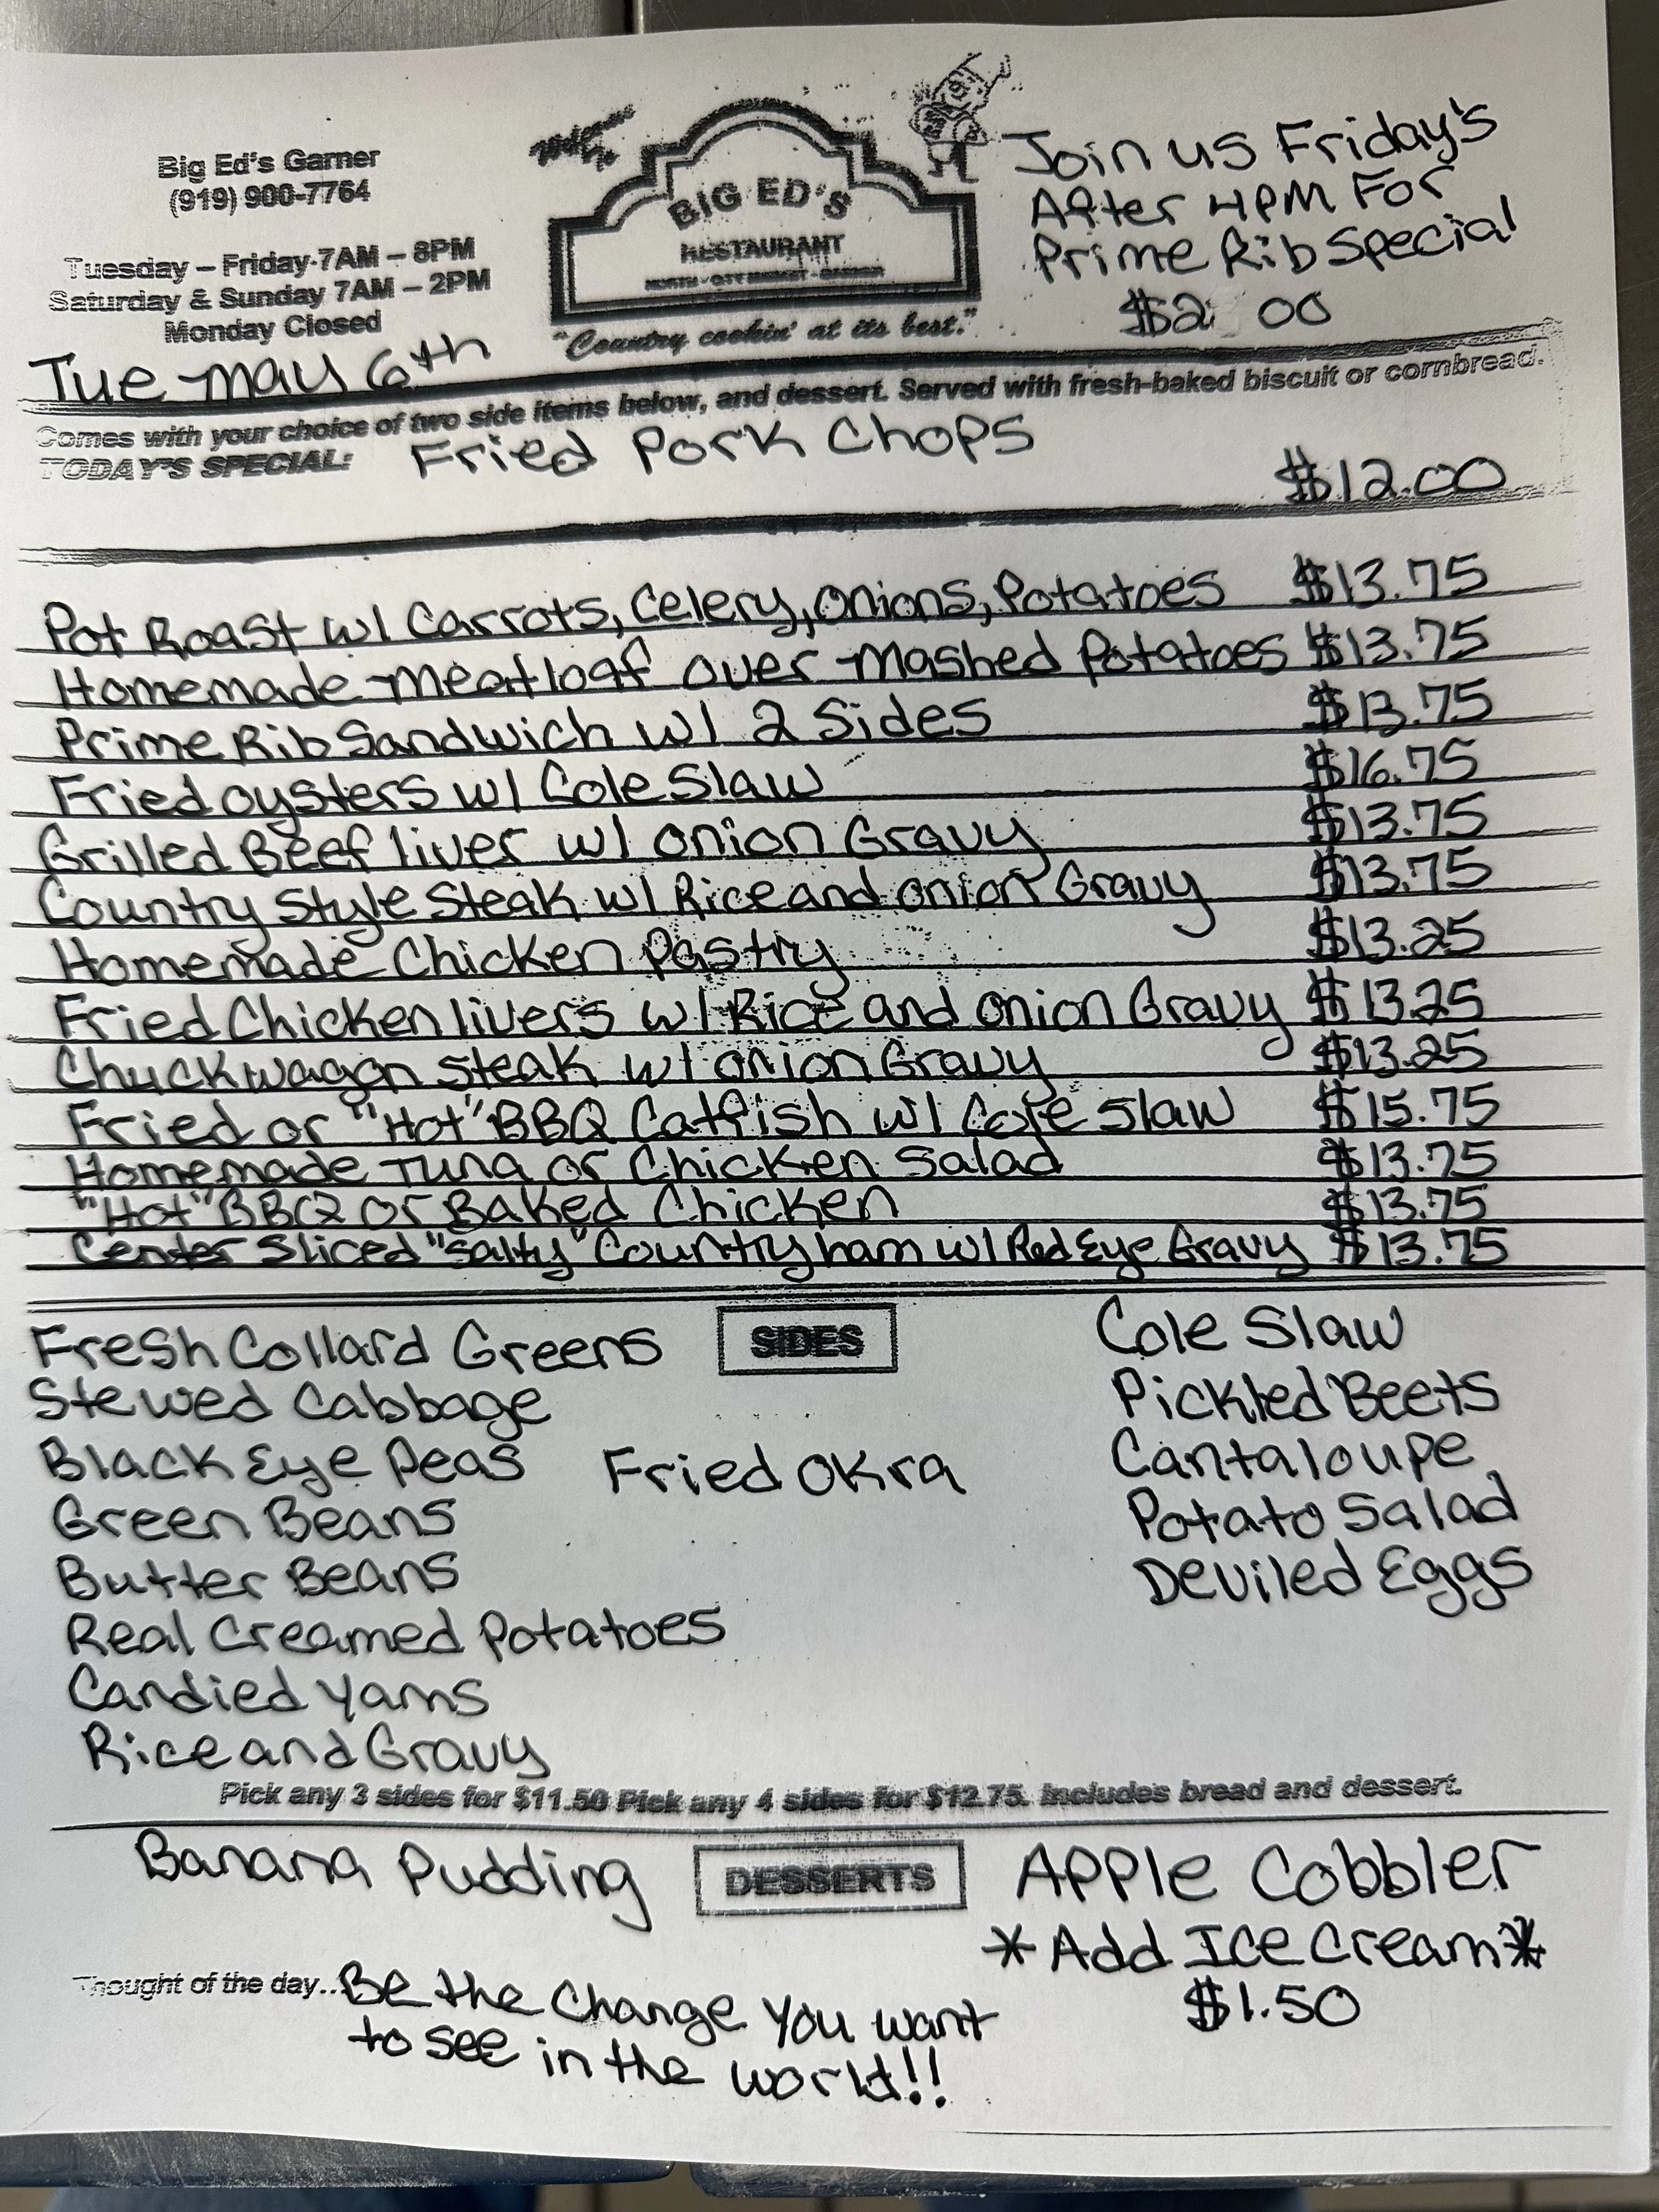 Big Ed's Garner
(919) 900-7764
Tuesday – Friday 7AM – 8PM
Saturday & Sunday 7AM – 2PM
Monday Closed
Welcome To
BIG ED'S
RESTAURANT
NORTH - CITY MARKET - GARNER
"Country cookin' at its best."
Join us Friday's
After 4PM For
Prime Rib Special
Tue May 6th
Comes with your choice of two side items below, and dessert. Served with fresh-baked biscuit or cornbread.
TODAY'S SPECIAL: Fried Pork Chops
$12.00
Pot Roast w/ Carrots, Celery, Onions, Potatoes $13.75
Homemade Meatloaf over Mashed Potatoes $13.75
Prime Rib Sandwich w/ 2 Sides $13.75
Fried oysters w/ Cole Slaw $16.75
Grilled Beef liver w/ onion Gravy $13.75
Country Style Steak w/ Rice and onion Gravy $13.75
Homemade Chicken Pastry $13.25
Fried Chicken livers w/ Rice and onion Gravy $13.25
Chuckwagon Steak w/ onion Gravy $13.25
Fried or "Hot" BBQ Catfish w/ Cole Slaw $15.75
Homemade Tuna or Chicken Salad $13.75
"Hot" BBQ or Baked Chicken $13.75
Center Sliced "Salty" Country ham w/ Red Eye Gravy $13.75
SIDES
Fresh Collard Greens
Stewed Cabbage
Black Eye Peas
Green Beans
Butter Beans
Real Creamed Potatoes
Candied Yams
Rice and Gravy
Fried Okra
Cole Slaw
Pickled Beets
Cantaloupe
Potato Salad
Deviled Eggs
Pick any 3 sides for $11.50 Pick any 4 sides for $12.75. Includes bread and dessert.
DESSERTS
Banana Pudding
Apple Cobbler
*Add Ice Cream*
$1.50
Thought of the day... Be the Change You want
to see in the world!!